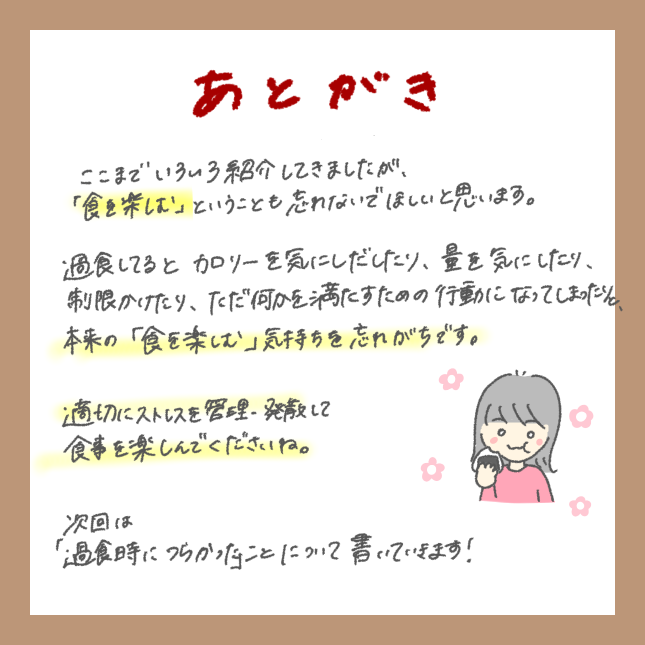 あとがき
ここまでいろいろ紹介してきましたが、
「食を楽しむ」ということも忘れないでほしいと思います。
過食してると カロリーを気にしだしたり、量を気にしたり、
制限かけたり、ただ何かを満たすための行動になってしまったりと、
本来の「食を楽しむ」気持ちを忘れがちです。
適切にストレスを管理・発散して
食事を楽しんでくださいね。
次回は
「過食時につらかったこと」について書いていきます!